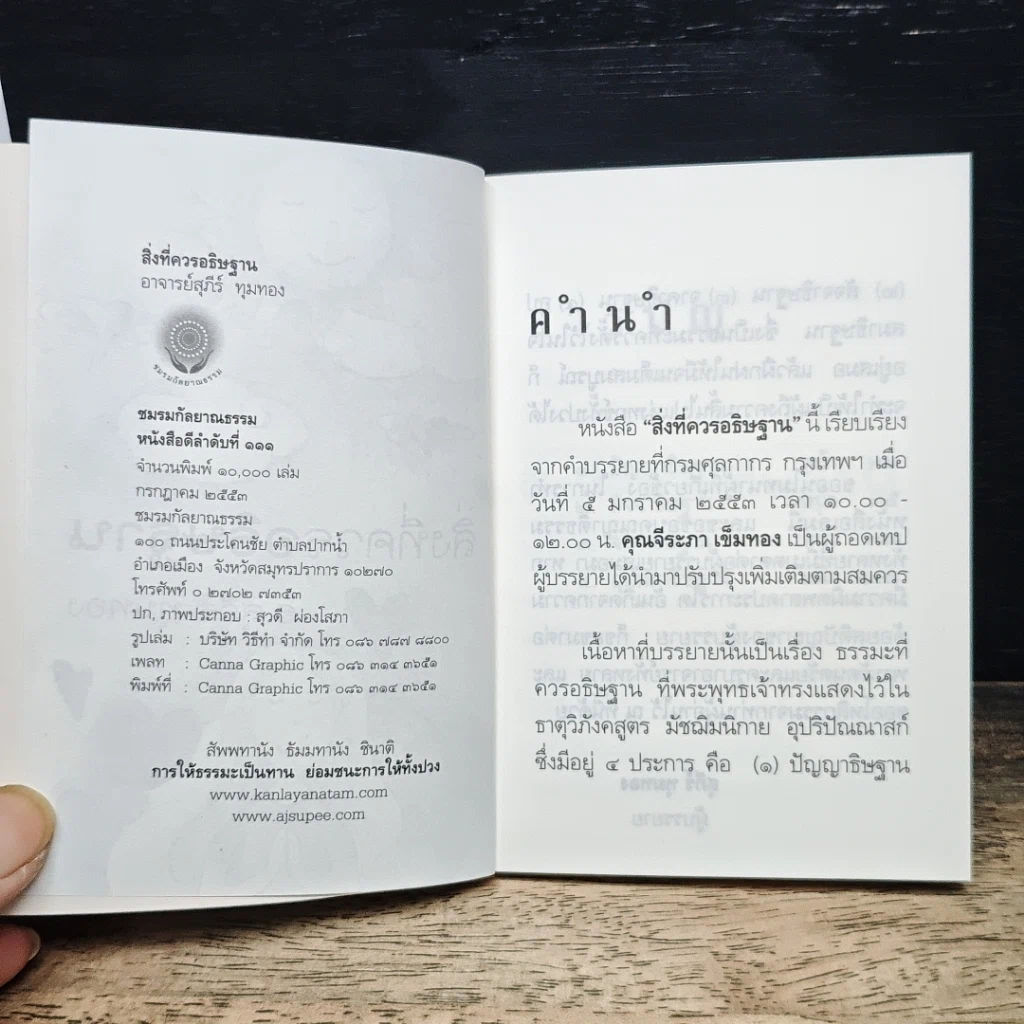 สิ่งที่ควรอธิษฐาน
อาจารย์สุภีร์ ทุมทอง
ชมรมกัลยาณธรรม
ชมรมกัลยาณธรรม
หนังสือดีลำดับที่ ๑๑๑
จำนวนพิมพ์ ๑๐,๐๐๐ เล่ม
กรกฎาคม ๒๕๕๓
ชมรมกัลยาณธรรม
๑๐๐ ถนนประโคนชัย ตำบลปากน้ำ
อำเภอเมือง จังหวัดสมุทรปราการ ๑๐๒๗๐
โทรศัพท์ ๐ ๒๗๐๒ ๗๓๕๓
ปก, ภาพประกอบ : สุวดี ผ่องโสภา
รูปเล่ม : บริษัท วิธีทำ จำกัด โทร ๐๘๖ ๗๘๗ ๘๘๐๐
เพลท : Canna Graphic โทร ๐๘๖ ๓๑๔ ๓๖๕๑
พิมพ์ที่ : Canna Graphic โทร ๐๘๖ ๓๑๔ ๓๖๕๑
สัพพทานัง ธัมมทานัง ชินาติ
การให้ธรรมะเป็นทาน ย่อมชนะการให้ทั้งปวง
www.kanlayanatam.com
www.ajsupee.com
คำนำ
หนังสือ “สิ่งที่ควรอธิษฐาน” นี้ เรียบเรียง
จากคำบรรยายที่กรมศุลกากร กรุงเทพฯ เมื่อ
วันที่ ๕ มกราคม ๒๕๕๓ เวลา ๑๐.๐๐ -
๑๒.๐๐ น. คุณจีระภา เข็มทอง เป็นผู้ถอดเทป
ผู้บรรยายได้นำมาปรับปรุงเพิ่มเติมตามสมควร
เนื้อหาที่บรรยายนั้นเป็นเรื่อง ธรรมะที่
ควรอธิษฐาน ที่พระพุทธเจ้าทรงแสดงไว้ใน
ธาตุวิภังคสูตร มัชฌิมนิกาย อุปริปัณณาสก์
ซึ่งมีอยู่ ๔ ประการ คือ (๑) ปัญญาธิษฐาน